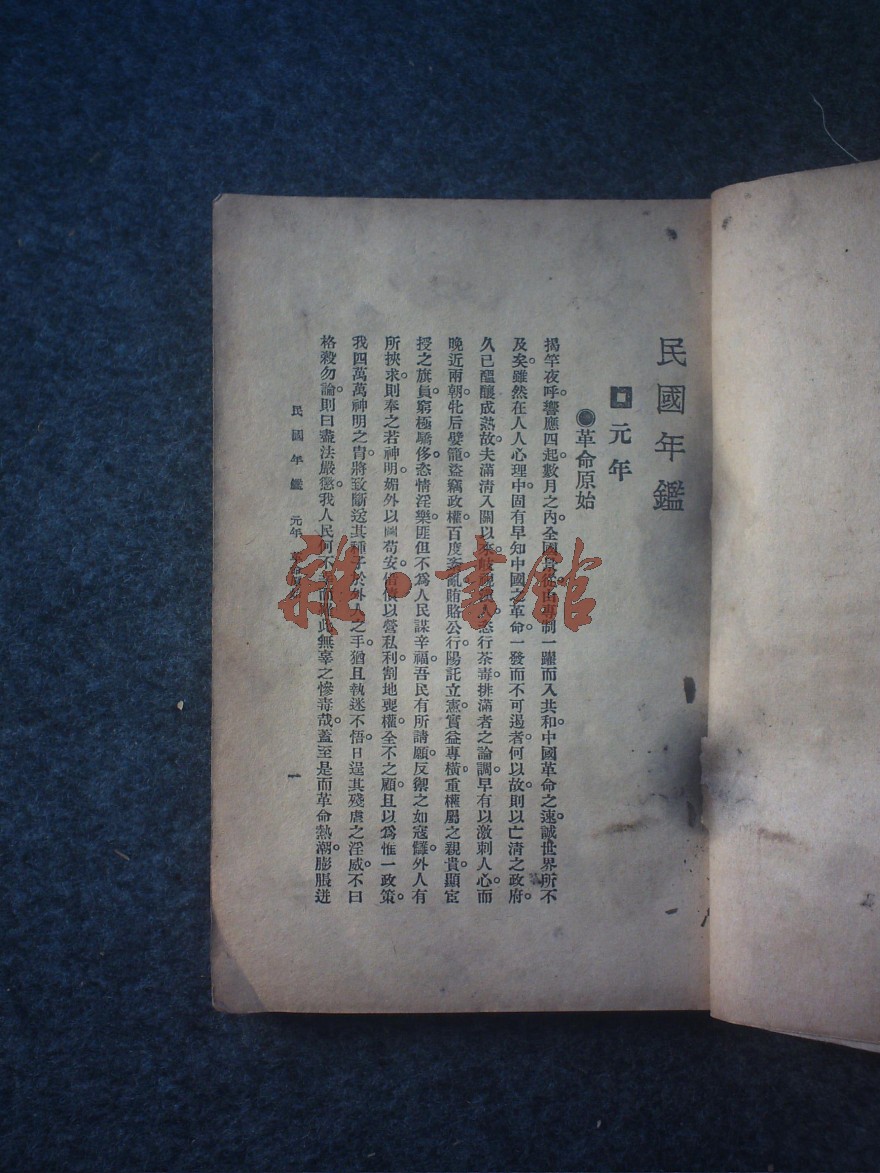 民國年鑑
元年
●革命原始
揭竿夜呼。響應四起。數月之內。全國身從由專制一躍而入共和。中國革命之速。誠世界所不
及矣。雖然在人人心理中。固有早知中國之革命一發而不可遏者。何以故。則以亡清之政府。
久已醞釀成熟故。夫滿清入關以來。歧視漢人。恣行荼毒。排滿者之論調。早有以激刺人心。而
晚近兩朝。牝后嬖寵。盜竊政權。百度紊亂。賄賂公行。陽託立憲。實益專橫。重權屬之親貴。顯宦
授之旗員。窮極驕侈。恣情淫樂。匪但不爲人民謀辛福。吾民有所請願。反禦之如寇讎。外人有
所挾求。則奉之若神明。媚外以圖苟安。借債以營私利。割地喪權。全不之顧。且以爲惟一政策。
我四萬萬神明之胄。將致斷送其種子於外人之手。猶且執迷不悟。日逞其殘虐之淫威。不曰
格殺勿論。則曰盡法嚴懲。我人民何不幸而罹此無辜之慘毒哉。蓋至是而革命熱潮。膨脹迸
民國年鑑 元年 革命原始
一
雜·書館